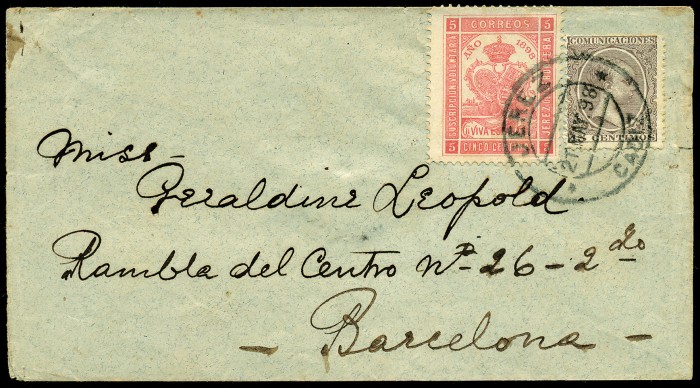 5 CORREOS 5
AÑO 1898
SUSCRIPCION VOLUNTARIA
JEREZ
¡¡VIVA
5 CINCO 5
COMUNICACIONES
CENTIMOS
JEREZ
MAY 98
Miss-
Geraldine Leopold-
Rambla del Centro Nº-26-2do
- Barcelona -